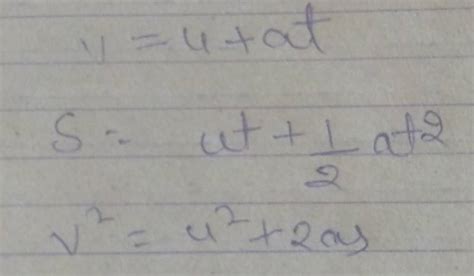 v = u + at
S = ut + 1/2 at²
v² = u² + 2as